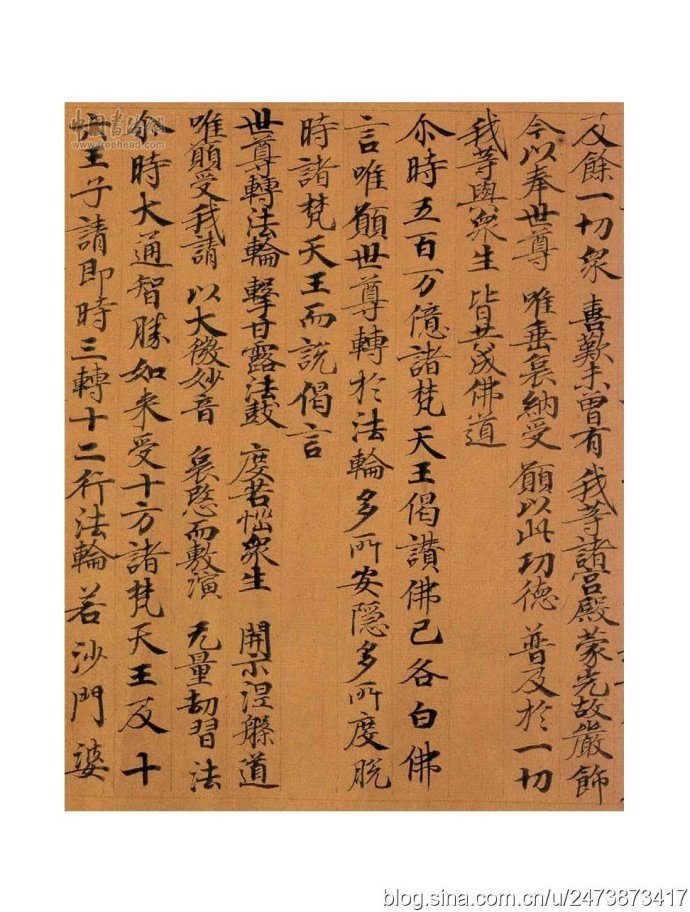 及餘一切衆 喜歎未曽有 我等諸宮殿 蒙光故嚴飾
今以奉世尊 唯垂哀納受 願以此功德 普及於一切
我等與衆生 皆共成佛道
尒時五百万億諸梵天王偈讃佛已各白佛
言唯願世尊轉於法輪多所安隱多所度脫
時諸梵天王而說偈言
世尊轉法輪 擊甘露法鼓 度苦惱衆生 開示涅槃道
唯願受我請 以大微妙音 哀愍而敷演 无量劫習法
尒時大通智勝如来受十方諸梵天王及十
六王子請即時三轉十二行法輪若沙門婆
中國書法網
www.freehead.com
blog.sina.com.cn/u/2473873417